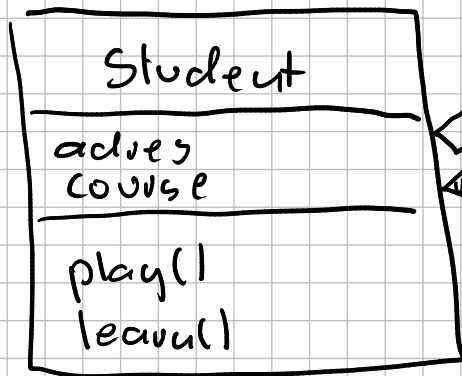 Student
adres
course
play()
leavu()